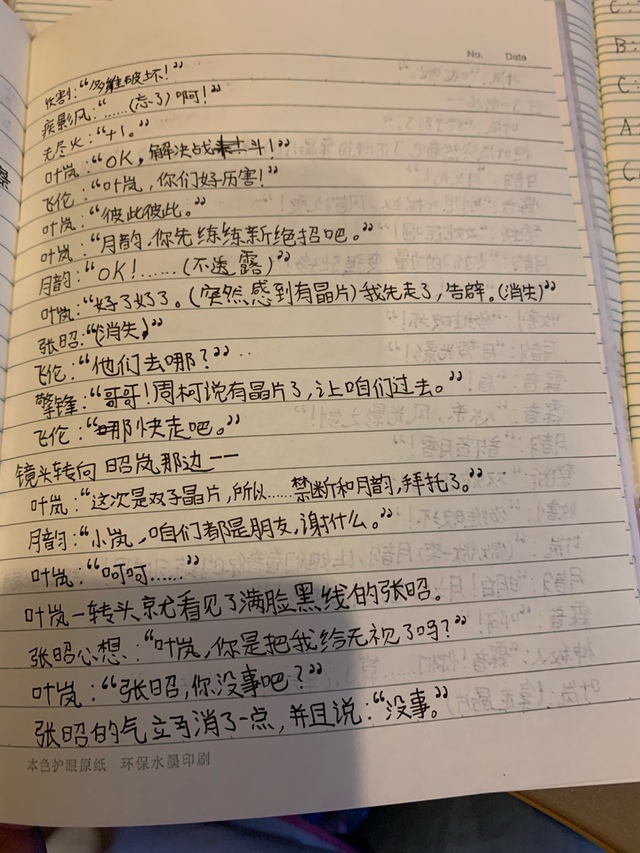 No. Date
牧割：“多维破坏！”
疾影风：“……（忘了）啊！”
无尽火：“+1。”
叶岚：“OK，解决战斗！”
飞伦：“叶岚，你们好厉害！”
叶岚：“彼此彼此。”
叶岚：“月韵，你先练练新绝招吧。”
月韵：“OK！……（不透露）”
叶岚：“好了好了。（突然感到有晶片）我先走了，告辞。（消失）”
张昭：“（消失）”
飞伦：“他们去哪？”
擎锋：“哥哥！周柯说有晶片了，让咱们过去。”
飞伦：“那快走吧。”
镜头转向 昭岚那边——
叶岚：“这次是双子晶片，所以……禁断和月韵，拜托了。”
月韵：“小岚，咱们都是朋友，谢什么。”
叶岚：“呵呵……”
叶岚一转头就看见了满脸黑线的张昭。
张昭心想：“叶岚，你是把我给无视了吗？”
叶岚：“张昭，你没事吧？”
张昭的气立马消了一点，并且说：“没事。”
本色护眼原纸 环保水墨印刷